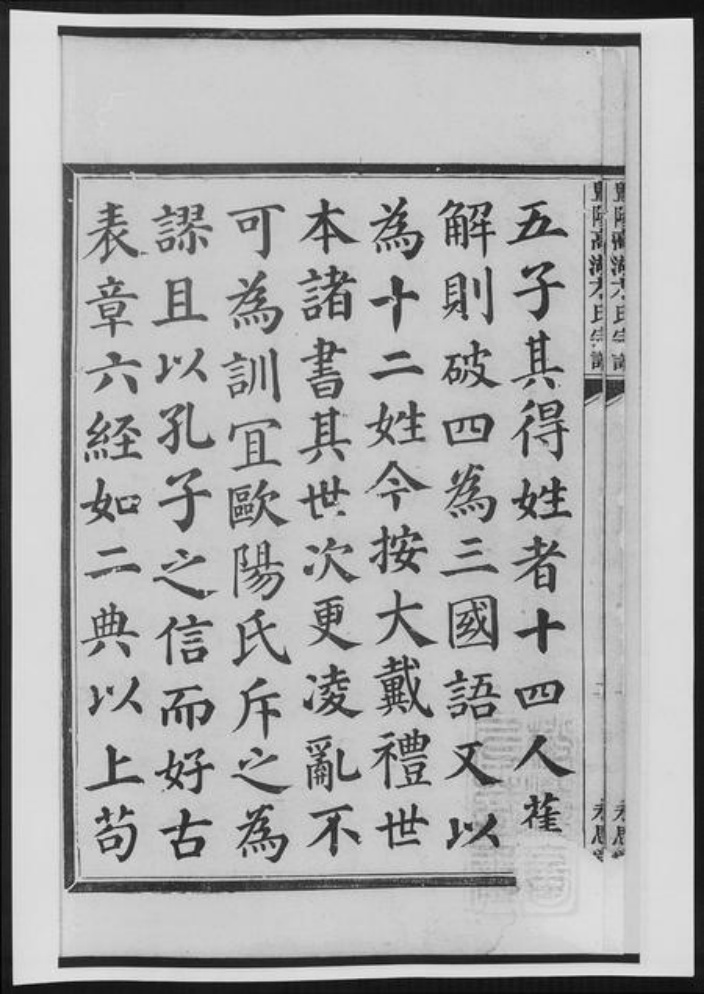 五子其得姓者十四人舊
解則破四為三國語又以
為十二姓今按大戴禮世
本諸書其世次更凌亂不
可為訓冝歐陽氏斥之為
謬且以孔子之信而好古
表章六経如二典以上苟